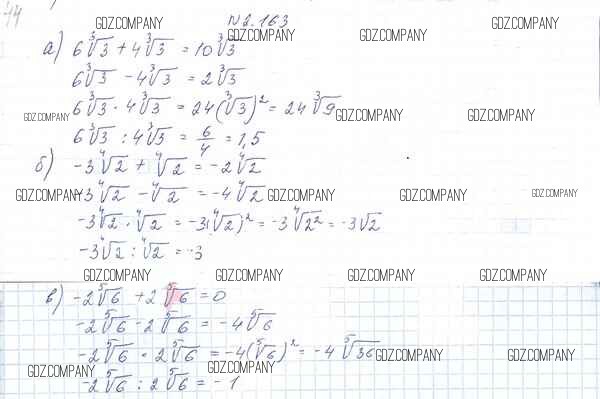 44
GDZ.COMPANY № 2.163
GDZ.COMPANY GDZ.COMPANY GDZ.COMPANY
а) 6∛3 + 4∛3 = 10∛3
6∛3 - 4∛3 = 2∛3
6∛3 · 4∛3 = 24(∛3)² = 24∛9
GDZ.COMPANY GDZ.COMPANY GDZ.COMPANY
6∛3 : 4∛3 = 6/4 = 1,5
б) -3∜2 + ∜2 = -2∜2
-3∜2 - ∜2 = -4∜2
GDZ.COMPANY GDZ.COMPANY GDZ.COMPANY GDZ.COMPANY
-3∜2 · ∜2 = -3(∜2)² = -3∜2² = -3√2
-3∜2 : ∜2 = -3
GDZ.COMPANY GDZ.COMPANY GDZ.COMPANY GDZ.COMPANY
в) -2⁵√6 + 2⁵√6 = 0
-2⁵√6 - 2⁵√6 = -4⁵√6
-2⁵√6 · 2⁵√6 = -4(⁵√6)² = -4⁵√36
GDZ.COMPANY GDZ.COMPANY
GDZ.COMPANY GDZ.COMPANY
-2⁵√6 : 2⁵√6 = -1